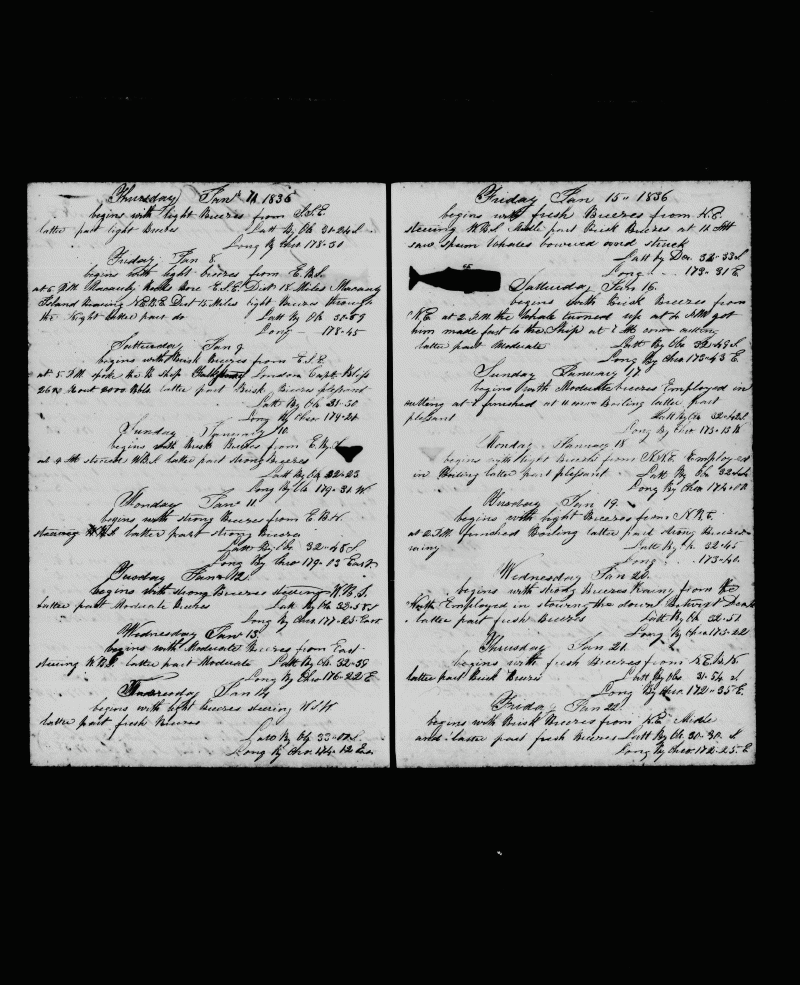 Thursday Jan 7 1836
begins with light Breezes from S.S.E
latter part light Breezes Latt By Ob 31-24 S
Long By Chro 178-30
Friday Jan 8
begins with light breezes from E.B.S.
at 5 P.M. Macauly Rocks bore E.S.E. Dist 18 Miles Macauly
Island bearing N.E.B.E Dist 15 Miles light Breezes through
the Night latter part do Latt By Ob 30-59
Long 178-45
Satturday Jan 9
begins with Brisk Breezes from E.S.E
at 5 P.M. spoke the B ship London Capt
26 m out 2000 Bbls latter part Brisk Breezes pleasant
Latt By Ob 31-30
Long By Chro
Sunday January 10
begins with Brisk Breezes from E. By
at 4 steered W.B.S. latter part strong Breezes
Latt By Ob
Long By Ob 179-31 W
Monday Jan 11
begins with strong Breezes from E.B.N.
steering W.B.S latter part strong Breezes
Latt By Obs 32-45 S
Long By Chro 179-13 East
Tuesday Jan 12
begins with strong Breezes steering W.B.S.
latter part Moderate Breezes Latt By Ob 32-58 S
Long By Chro 177-25 East
Wednesday Jan 13
begins with Moderate Breezes from East
steering W.B.S latter part Moderate Latt By Ob 32-59
Long By Chro 176-22 E
Thursday Jan 14
begins with light Breezes steering W
latter part fresh Breezes
Latt By Ob 33
Long By Chro 174-12 East
Friday Jan 15 1836
begins with fresh Breezes from N.E.
steering W.B.S Middle part Brisk Breezes at 11 AM
saw sperm Whales lowered and struck
Latt by Dea 32-33 S
Long 173-31 E
Satturday Jan 16
begins with Brisk Breezes from
N.E. at 2 P.M the Whale turned up at 4 P.M got
him made fast to the Ship at 7 AM comm cutting
latter part Moderate Latt By Ob 32-49 S
Long By Chro 173-43 E
Sunday January 17
begins with Moderate breezes Employed in
cutting at finished at 11 comm Boiling latter part
pleasant Latt By Ob 32-42 S
Long By Chro 173-13
Monday January 18
begins with light Breezes from N.N.E. Employed
in Boiling latter part pleasant Latt By Ob 32
Long By Chro
Tuesday Jan 19
begins with light Breezes from N.N.E.
at 2 P.M finished Boiling latter part strong Breezes
rainy Latt By 32-45
Long 173-40
Wednesday Jan 20
begins with strong Breezes Rainy from the
North Employed in stowing the down Betwixt Decks
latter part fresh Breezes Latt By Ob 32-51
Long By Chro 173-22
Thursday Jan 21
begins with fresh Breezes from N.E.B.N.
latter part Brisk Breezes Latt By Obs 31-54 S
Long By Chro 172-35 E.
Friday Jan 22
begins with Brisk Breezes from N.E. Middle
and latter part fresh Breezes Latt By Ob 30-30 S
Long By Chro 172-25 E